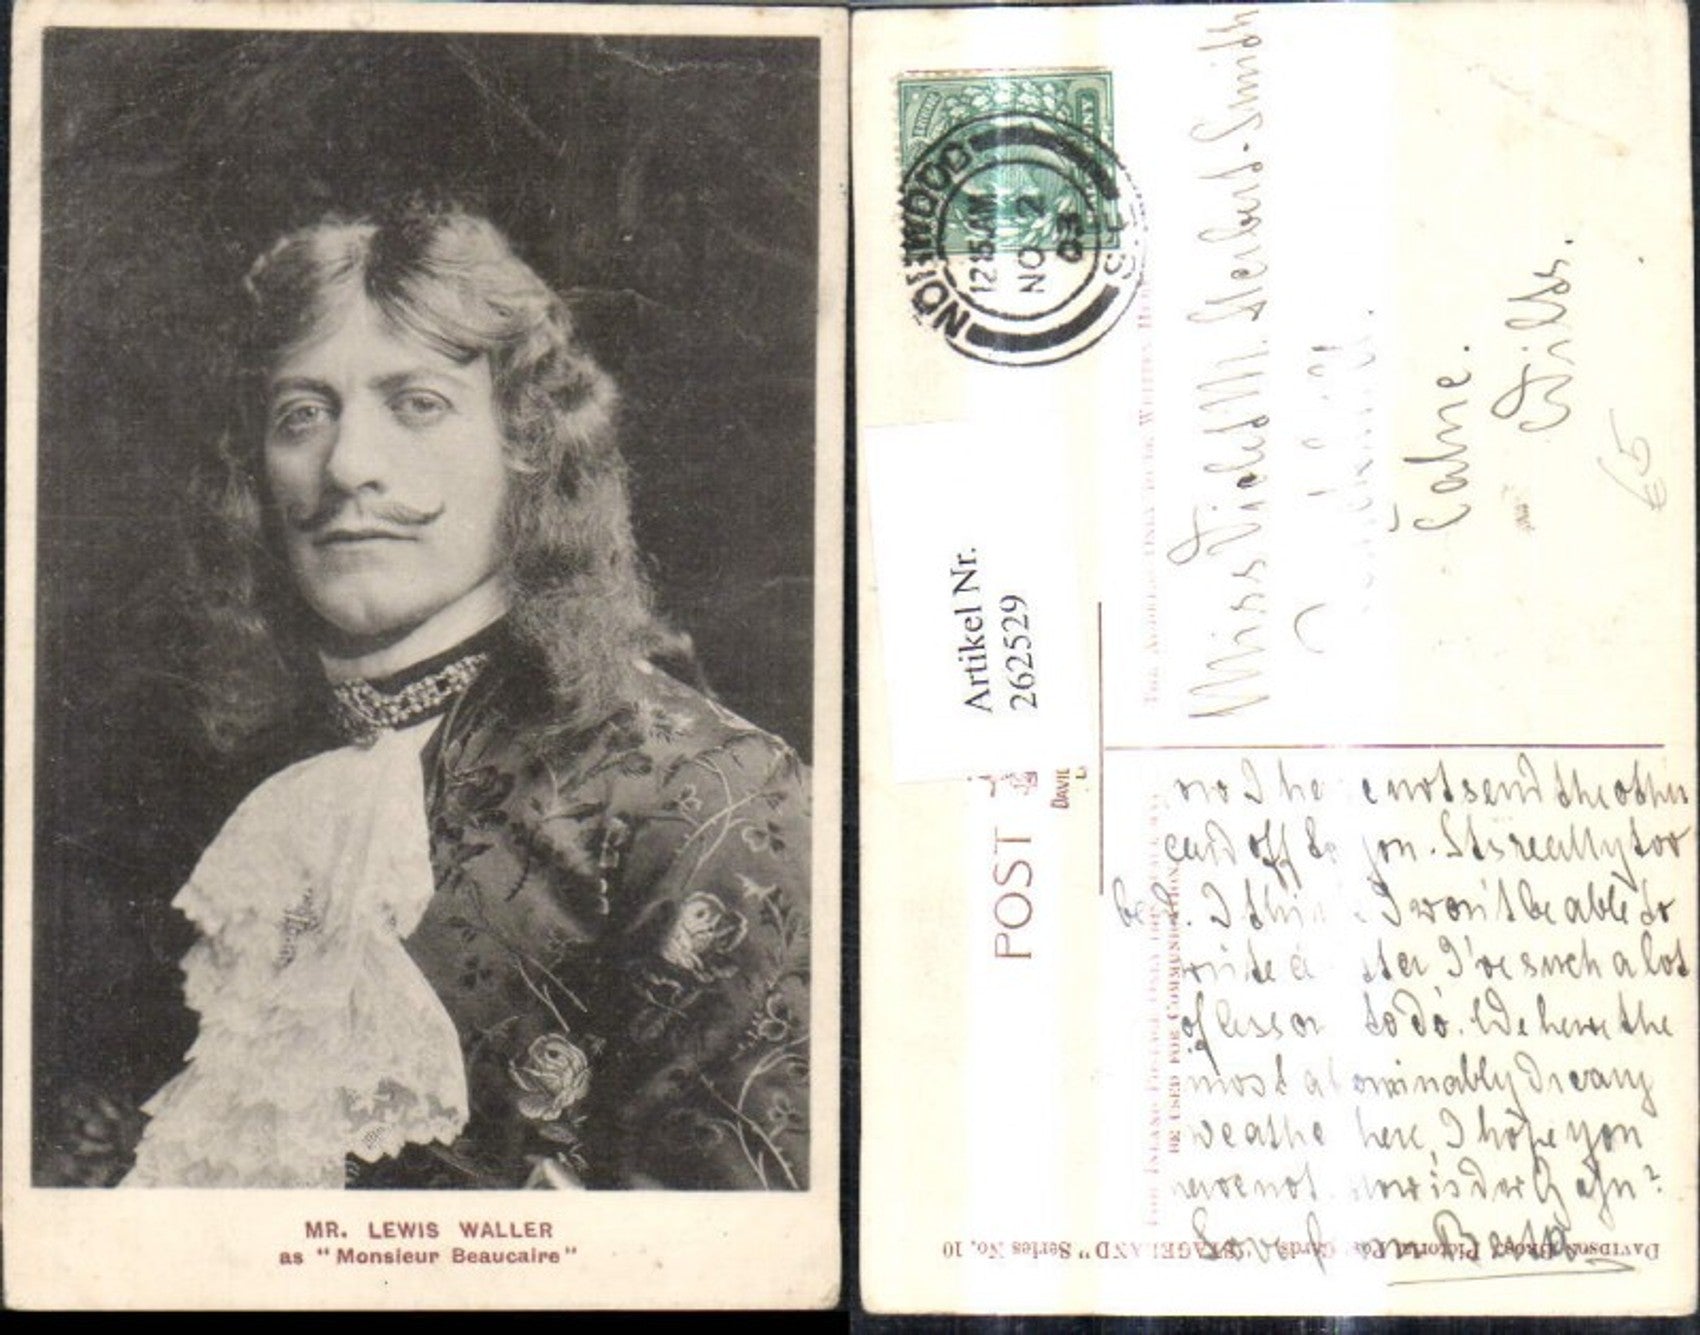 MR. LEWIS WALLER
as "Monsieur Beaucaire"
NORWOOD
12 15 AM
NO 2
03
S.E.
Artikel Nr.
2622529
POST
DAVID
Miss Violet M. Herbert-Smith
Calne.
Wilts.
€5
FOR INLAND POSTAGE ONLY THIS SPACE MAY
BE USED FOR COMMUNICATION
THE ADDRESS ONLY TO BE WRITTEN HERE
not send the other
card off to you. It is really too
bad. I think I won't be able to
write a letter I've such a lot
of lesson to do. We have the
most abominably dreary
weather here, I hope you
have not. How is
Love from
DAVIDSON BROS' Pictorial Post Cards. "STAGELAND" Series No. 10